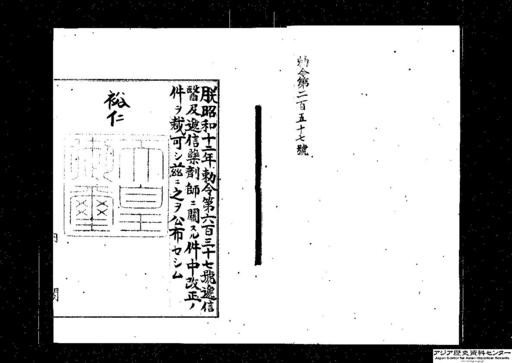 勅令第二百五十七號
朕昭和十二年勅令第六百三十七號遞信
醫及遞信藥劑師ニ關スル件中改正ノ
件ヲ裁可シ茲ニ之ヲ公布セシム
裕仁
天皇
御璽
内閣
アジア歴史資料センター
Japan Center for Asian Historical Records